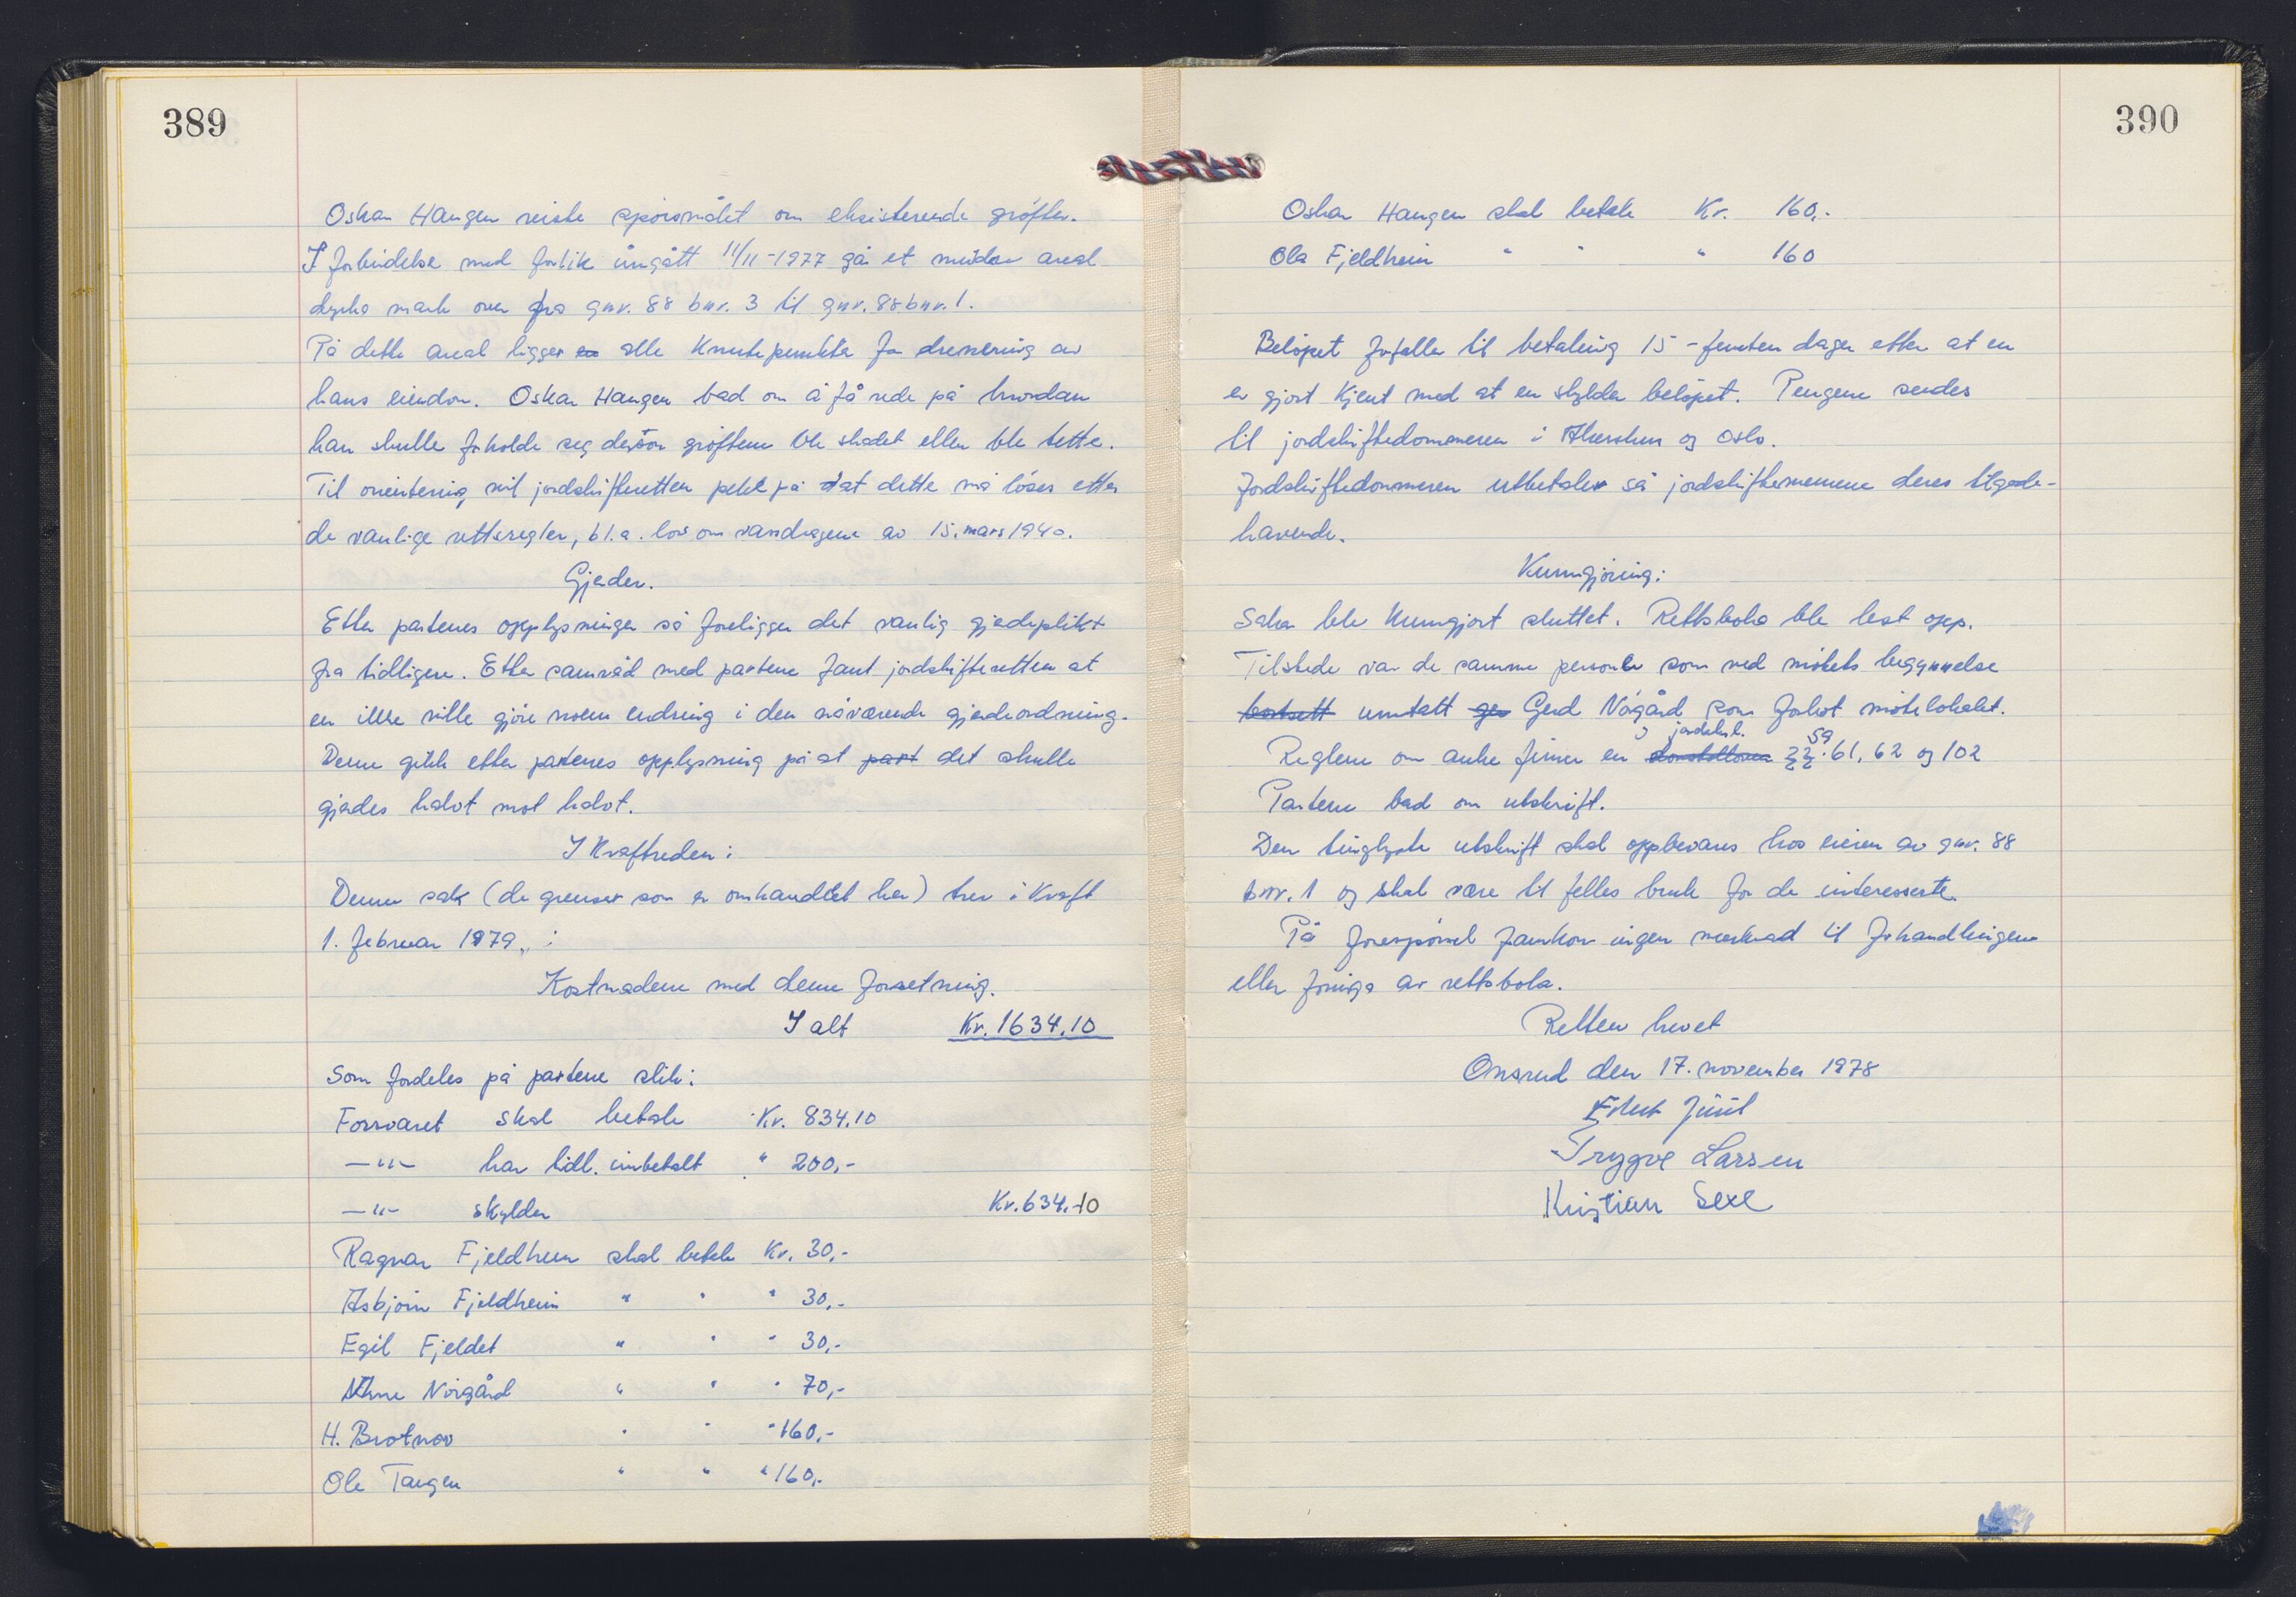 389
Oskar Haugen reiste spørsmålet om eksisterende grøfter.
I forbindelse med forlik inngått 11/11-1977 gå et mindre areal
dyrka mark over fra gnr. 88 bnr. 3 til gnr. 88 bnr. 1.
På dette areal ligger en alle knutepunkter for drenering av
hans eiendom. Oskar Haugen bad om å få rede på hvordan
han skulle forholde seg dersom grøftene ble skadet eller ble tette.
Til orientering vil jordskifteretten peke på at dette må løses etter
de vanlige rettsregler, bl.a. lov om vassdragene av 15. mars 1940.
Gjerder.
Etter partenes opplysninger så foreligger det vanlig gjerdeplikt
fra tidligere. Etter samråd med partene fant jordskifteretten at
en ikke ville gjøre noen endring i den nåværende gjerdeordning.
Denne gikk etter partenes opplysning på at part det skulle
gjerdes halvt mot halvt.
I Kraftreden:
Denne sak (de grenser som er omhandlet her) trer i kraft
1. februar 1979.
Kostnadene med denne forretning.
I alt Kr. 1634.10
Som fordeles på partene slik:
Forsvaret skal betale Kr. 834.10
—"— har tidl. innbetalt " 200,-
—"— skylder Kr. 634.10
Ragnar Fjeldheim skal betale Kr. 30,-
Asbjørn Fjeldheim " " " 30,-
Egil Fjeldet " " " 30,-
Arne Norgård " " " 70,-
H. Brotnov " " " 160,-
Ole Tangen " " " 160,-
390
Oskar Haugen skal betale Kr. 160,-
Ola Fjeldheim " " " 160
Beløpet forfaller til betaling 15 - femten dager etter at en
er gjort kjent med at en skylder beløpet. Pengene sendes
til jordskiftedommeren i Akershus og Oslo.
Jordskiftedommeren utbetaler så jordskiftemennene deres tilgode-
havende.
Kunngjøring:
Saka ble kunngjort sluttet. Rettsboka ble lest opp.
Tilstede var de samme personer som ved møtets begynnelse
bortsett unntatt Gerd Norgård som forlot møtelokalet.
jordskl.
Reglene om anke finner en §§ 61, 62 og 102
Partene bad om utskrift.
Den tinglyste utskrift skal oppbevares hos eieren av gnr. 88
bnr. 1 og skal være til felles bruk for de interesserte.
På forespørsel framkom ingen merknad til forhandlingene
eller føringa av rettsboka.
Retten hevet
Onsrud den 17. november 1978
Juul
Trygve Larsen
Kristian Sexe